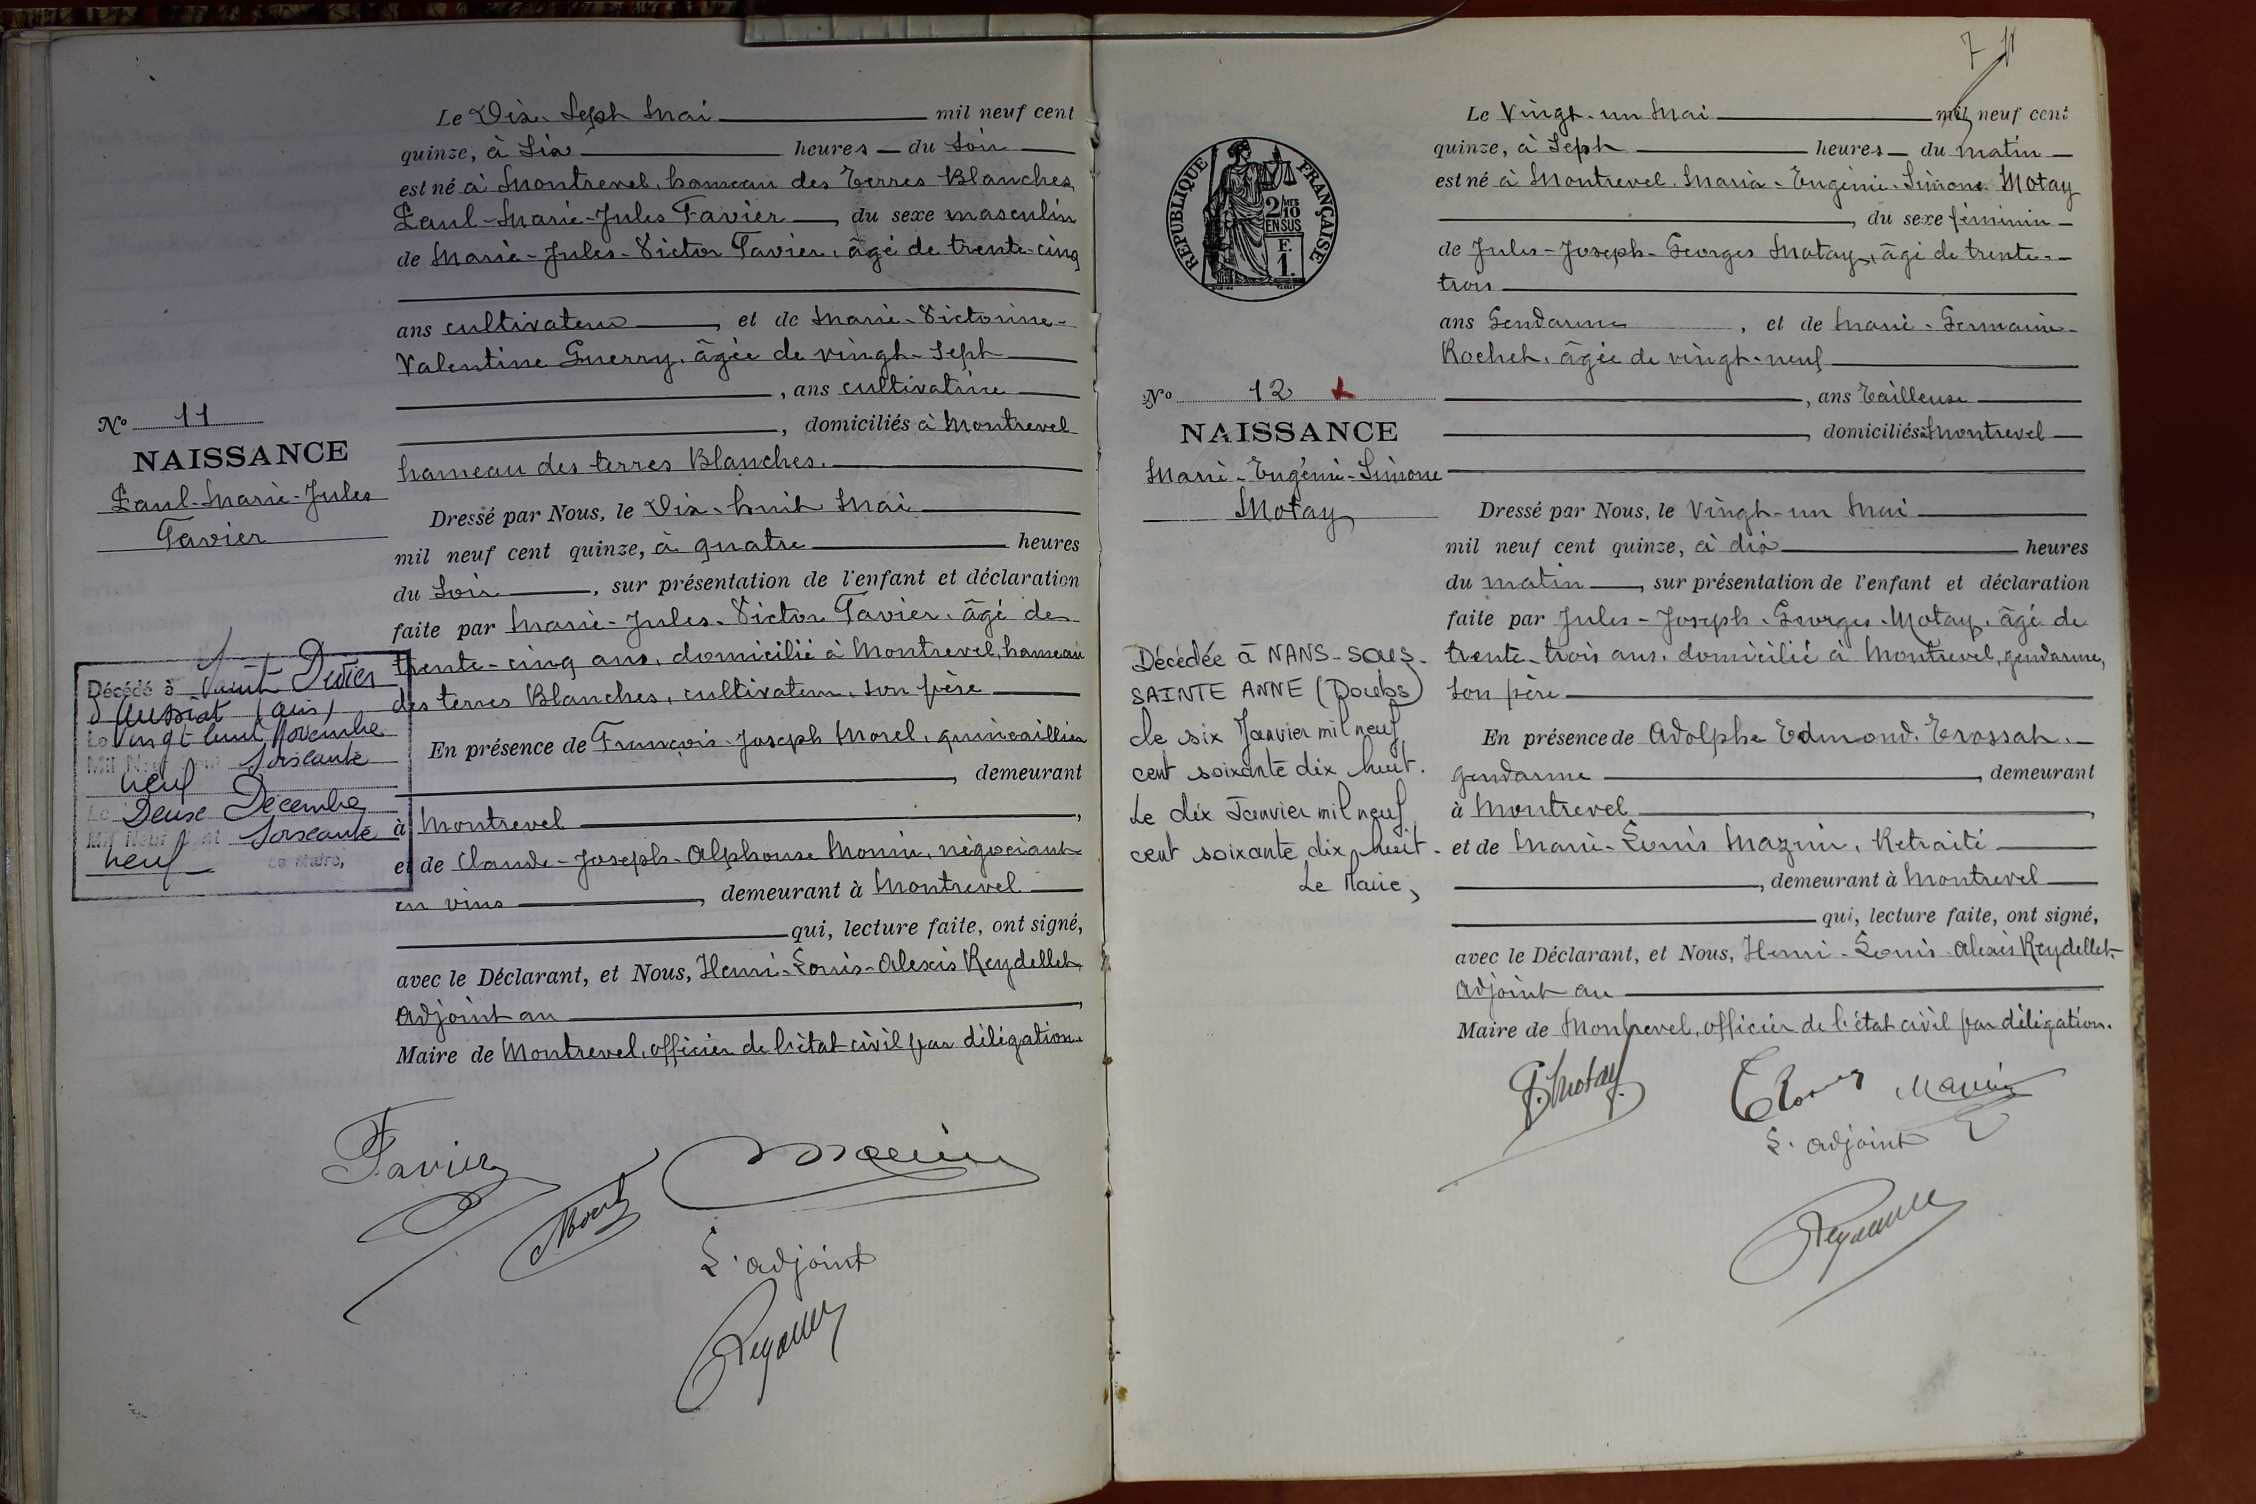 Le Dix-Sept Mai mil neuf cent
quinze, à Six heures du Soir
est né à Montrevel, hameau des Terres Blanches,
Paul-Marie-Jules Favier, du sexe masculin
de Marie-Jules-Victor Favier, âgé de trente-cinq
ans cultivateur, et de Marie-Victorine-
Valentine Guerry, âgée de vingt-Sept
, ans cultivatrice
, domiciliés à Montrevel
hameau des terres Blanches.
Nº 11
NAISSANCE
Paul-Marie-Jules
Favier
Dressé par Nous, le Dix-huit Mai
mil neuf cent quinze, à quatre heures
du Soir, sur présentation de l'enfant et déclaration
faite par Marie-Jules-Victor Favier, âgé de
trente-cinq ans, domicilié à Montrevel, hameau
des terres Blanches, cultivateur, son père
En présence de François-Joseph Morel, quincaillier
, demeurant
à Montrevel,
et de Claude-Joseph-Alphonse Monin, négociant
en vins, demeurant à Montrevel
qui, lecture faite, ont signé,
avec le Déclarant, et Nous, Henri-Louis-Alexis Reydellet,
Adjoint au,
Maire de Montrevel, officier de l'état civil par délégation.
Décédé à Saint Didier
d'Aussiat (Ain)
Le Vingt huit Novembre
Mil Neuf Cent Soixante
neuf
Le Deuxe Décembre
Mil Neuf Cent Soixante
neuf
Le Maire,
Favier
Morel
Monin
L'adjoint
Reydellet
7
Le Vingt-un Mai mil neuf cent
quinze, à Sept heures du matin
est né à Montrevel, Marie-Eugénie-Simone Motay
, du sexe féminin
de Jules-Joseph-Georges Motay, âgé de trente-
trois
ans Gendarme, et de Marie-Germaine
Rochet, âgée de vingt-neuf
, ans Tailleuse
, domiciliés à Montrevel
RÉPUBLIQUE FRANÇAISE
2/10 EN SUS
F.
1.
Nº 12
NAISSANCE
Marie-Eugénie-Simone
Motay
Dressé par Nous, le Vingt-un Mai
mil neuf cent quinze, à dix heures
du matin, sur présentation de l'enfant et déclaration
faite par Jules-Joseph-Georges-Motay, âgé de
trente-trois ans, domicilié à Montrevel, gendarme,
Son père
En présence de Adolphe Edmond Trossat,
gendarme, demeurant
à Montrevel,
et de Marie-Louis Mazuir, Retraité
, demeurant à Montrevel
qui, lecture faite, ont signé,
avec le Déclarant, et Nous, Henri-Louis-Alexis Reydellet,
Adjoint au
Maire de Montrevel, officier de l'état civil par délégation.
Décédée à NANS-SOUS-
SAINTE ANNE (Doubs)
le six Janvier mil neuf
cent soixante dix huit.
Le dix Janvier mil neuf
cent soixante dix huit.
Le Maire,
J. Motay
L'adjoint
Reydellet